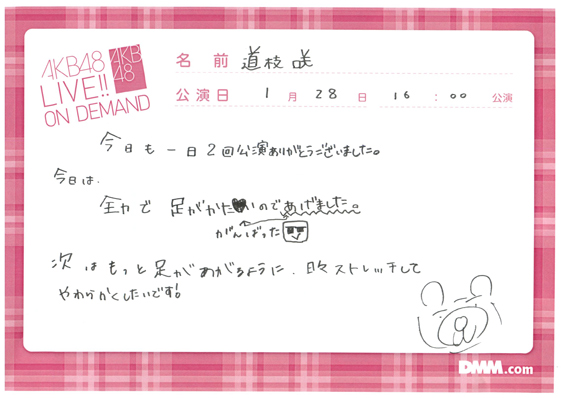 AKB48
LIVE!!
ON DEMAND
AKB
48
名 前 道枝 咲
公演日 1 月 28 日 16 : 00 公演
今日も一日2回公演ありがとうございました。
今日は、
全力で 足がかたいのであげました。
がんばった
次はもっと足があがるように、日々ストレッチして
やわらかくしたいです!
DMM.com